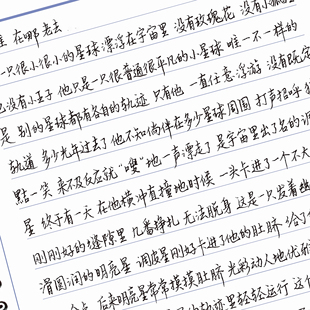 在哪老去
一只很小很小的星球 漂浮在宇宙里 没有玫瑰花 没有小狐狸
也没有小王子 他只是一只很普通很平凡的小星球 唯一不一样的
是 别的星球都有各自的轨迹 只有他 一直任意浮游 没有既定
轨道 多少光年过去了 他不知徜徉在多少星球周围 打声招呼 我
黠一笑 来不及反应就“嗖”地一声漂走了 是宇宙里出了名的调
星 终于有一天 在他横冲直撞地时候 一头卡进了一个不大
刚刚好的缝隙里 几番挣扎 无法脱身 这是一只发着幽
滑圆润的明亮星 调皮星刚好卡进了他的肚脐
后来明亮星常常摸摸肚脐 光彩动人地优雅
轨迹里轻轻运行 这个